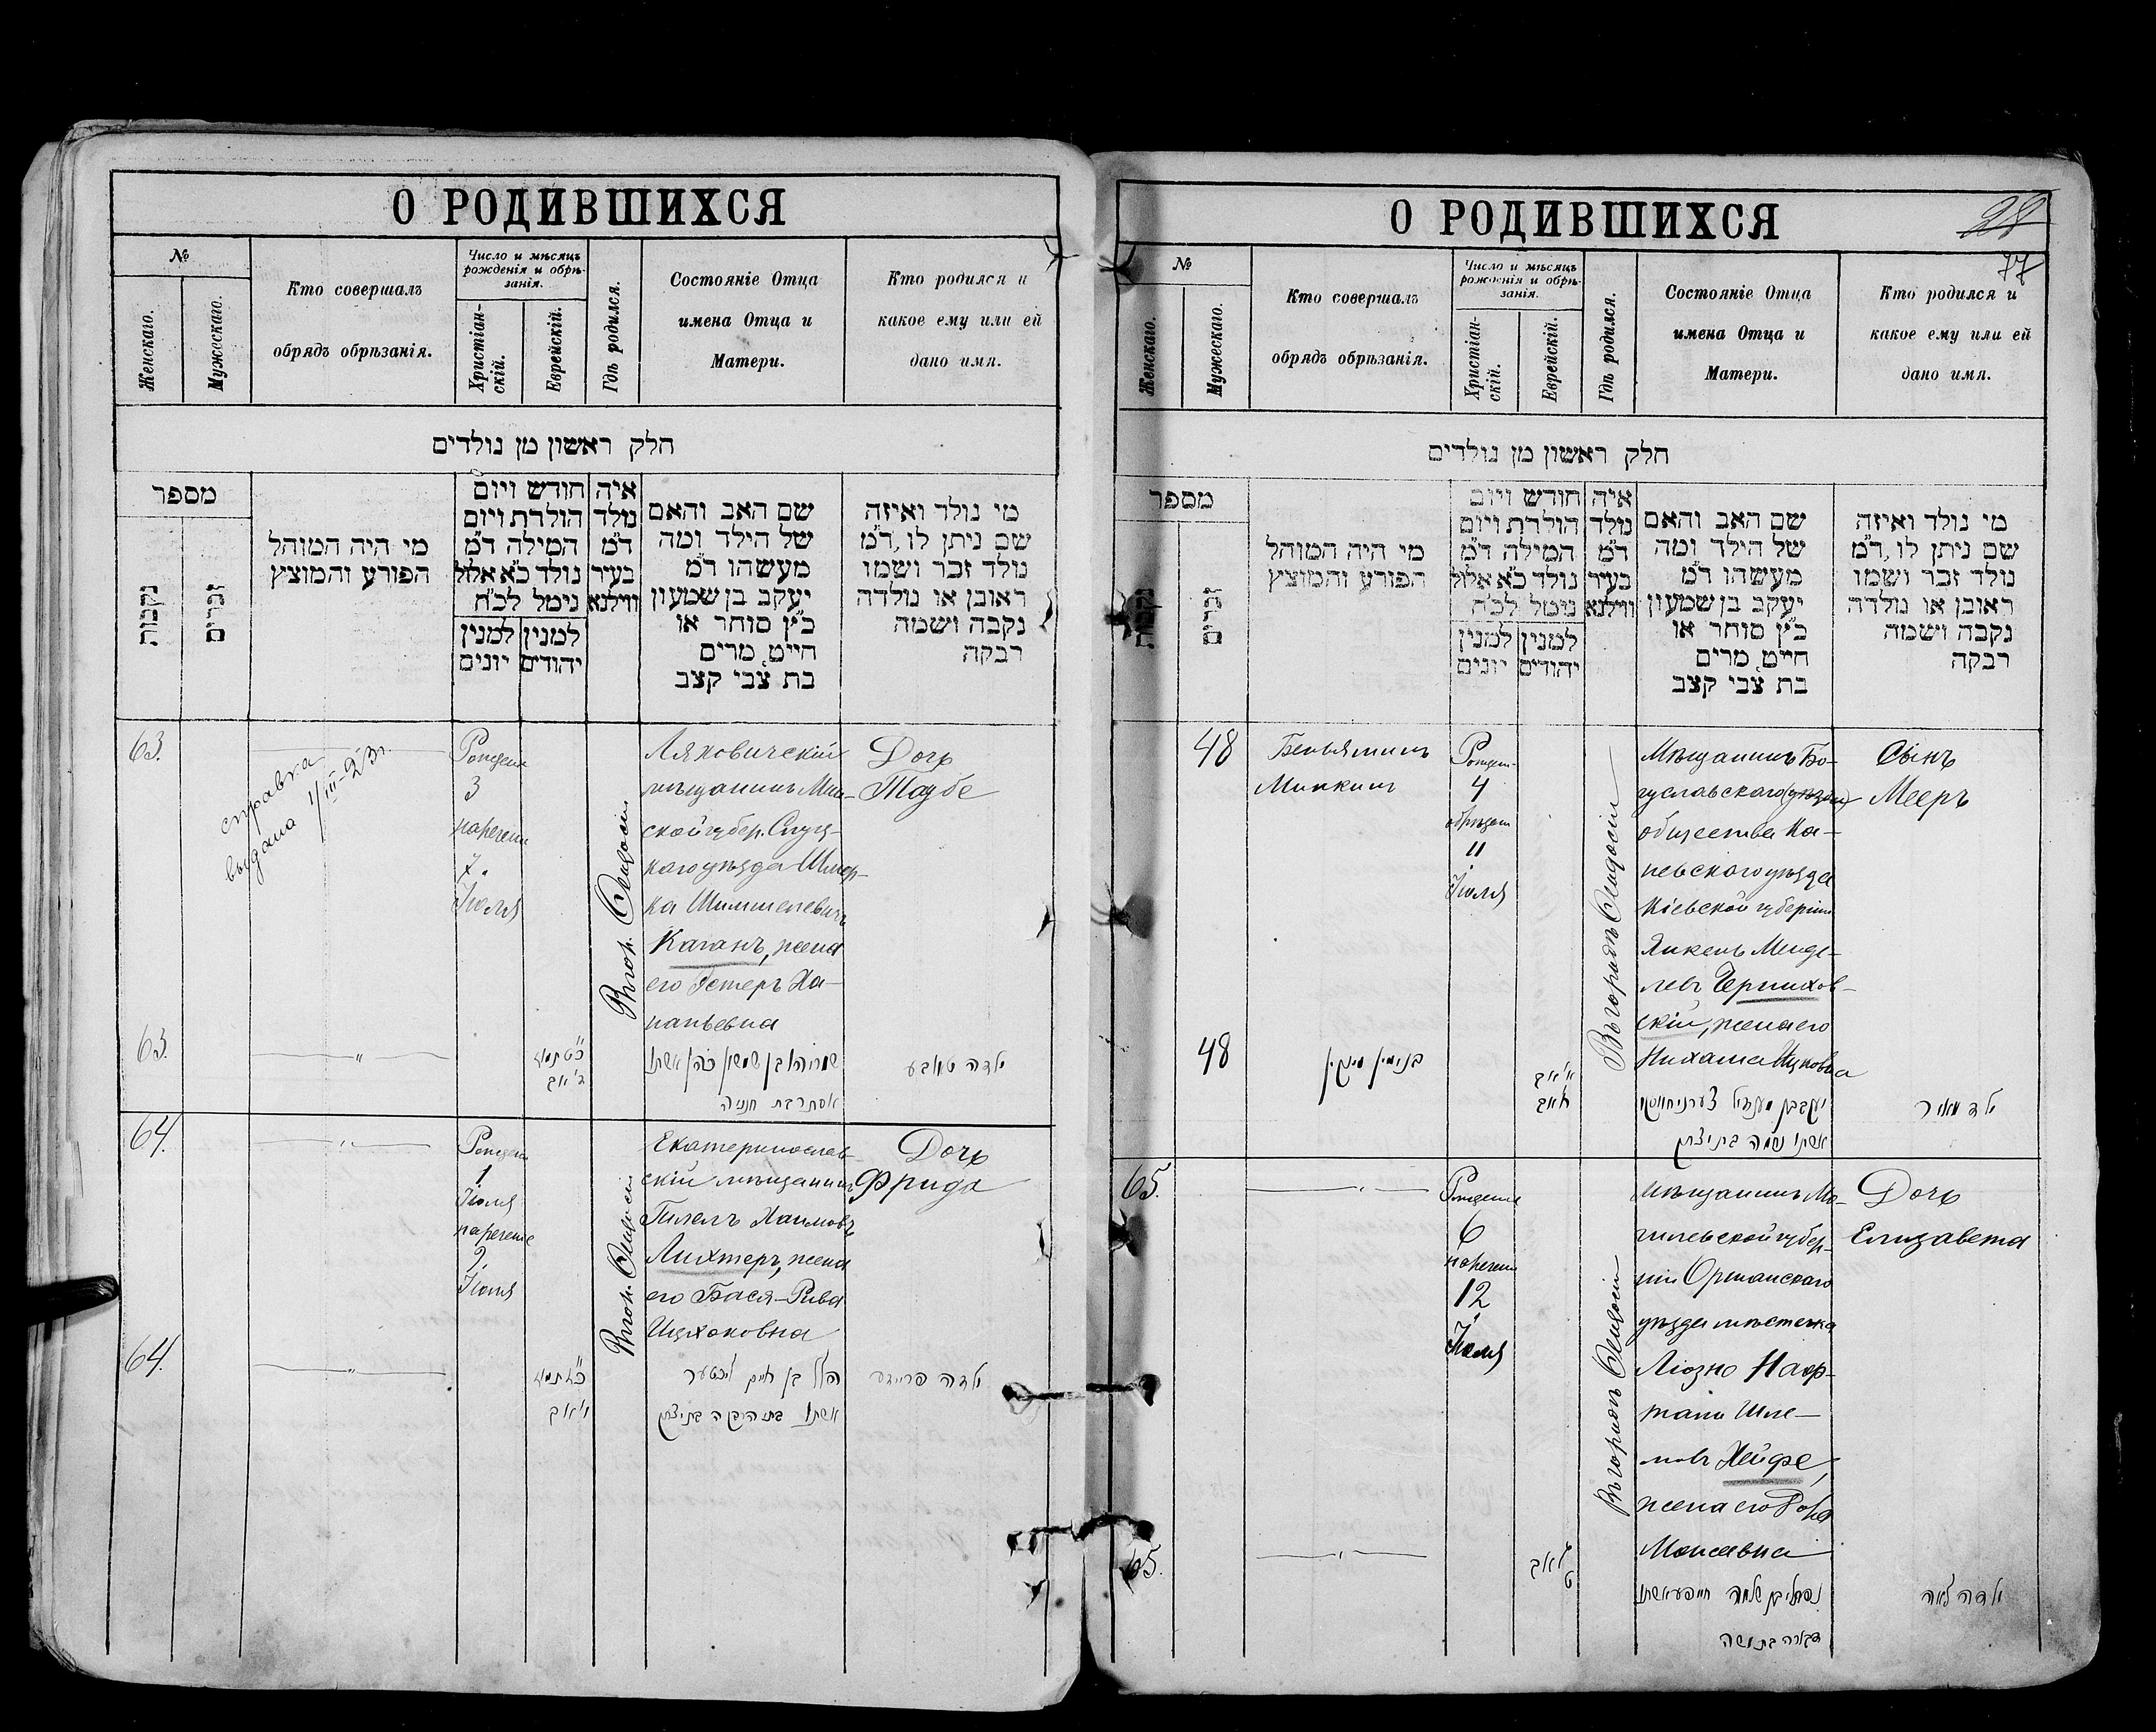 О РОДИВШИХСЯ
№
Женскаго.
Мужескаго.
Кто совершалъ
обрядъ обрѣзанія.
Число и мѣсяцъ
рожденія и обрѣ-
занія.
Христіан-
скій.
Еврейскій.
Гдѣ родился.
Состояніе Отца
имена Отца и
Матери.
Кто родился и
какое ему или ей
дано имя.
חלק ראשון מן נולדים
מספר
נקבות
זכרים
מי היה המוהל
הפורע והמוצץ
חודש ויום
הולדת ויום
המילה ד״מ
נולד כ״א אלול
נימל לכ״ח
למנין יונים
למנין יהודים
איה
נולד
ד״מ
בעיר
ווילנא
שם האב והאם
של הילד ומה
מעשהו ד״מ
יעקב בן שמעון
כ״ץ סוחר או
חייט, מרים
בת צבי קצב
מי נולד ואיזה
שם ניתן לו, ד״מ
נולד זכר ושמו
ראובן או נולדה
נקבה ושמה
רבקה
63.
справка
выдана 1/III-23г.
Рожденія
3
нареченія
7.
Іюля
Ляховичскій
мѣщанинъ Мин-
ской губер. Слуц-
каго уѣзда Шмер-
ка Шимшелевичъ
Каганъ, жена
его Эстеръ Ха-
наньевна
Дочь
Таубе
63.
כ״ט תמוז
ד׳ אב
שמשון כהן אשתו
אסתר בת חנניה
ילדה טויבע
64.
Рожденія
1
Іюля
нареченіе
9
Іюля
Екатеринослав-
скій мѣщанинъ
Гилелъ Хаимовъ
Лихтеръ, жена
его Бася-Рива
Ицхоковна
Дочь
Фрида
64.
כ״ז תמוז
ו׳ אב
הלל בן חיים ליכטער
אשתו בתי׳ רבקה בת יצחק
ילדה פריידע
О РОДИВШИХСЯ
28
77
№
Женскаго.
Мужескаго.
Кто совершалъ
обрядъ обрѣзанія.
Число и мѣсяцъ
рожденія и обрѣ-
занія.
Христіан-
скій.
Еврейскій.
Гдѣ родился.
Состояніе Отца
имена Отца и
Матери.
Кто родился и
какое ему или ей
дано имя.
חלק ראשון מן נולדים
מספר
נקבות
זכרים
מי היה המוהל
הפורע והמוצץ
חודש ויום
הולדת ויום
המילה ד״מ
נולד כ״א אלול
נימל לכ״ח
למנין יונים
למנין יהודים
איה
נולד
ד״מ
בעיר
ווילנא
שם האב והאם
של הילד ומה
מעשהו ד״מ
יעקב בן שמעון
כ״ץ סוחר או
חייט, מרים
בת צבי קצב
מי נולד ואיזה
שם ניתן לו, ד״מ
נולד זכר ושמו
ראובן או נולדה
נקבה ושמה
רבקה
48
Беньяминъ
Минкинъ
Рожден.
4
обрѣзан.
11
Іюля
Въ городѣ
Мѣщанинъ Бо-
гуславскаго
общества Ка-
невскаго уѣзда
Кіевской губерніи
Янкель Менде-
левъ Чернихов-
скій, жена его
Нихама Ицковна
Сынъ
Мееръ
48
בנימין מינקין
א׳ אב
ח׳ אב
יעקב בן מענדיל צערניחאווסקי
אשתו נחמה בת יצחק
ילד מאיר
65.
Рожденія
6
нареченія
12
Іюля
Въ городѣ
мѣщанинъ Мо-
гилевской губер-
ніи Оршанскаго
уѣзда мѣстечка
Ліозно Наф-
тали Шле-
мовъ Хейфе,
жена его
Моисеевна
Дочь
Елизавета
65.
אב
נפתלי בן שלמה חייפע אשתו
דבורה בת משה
ילדה לאה